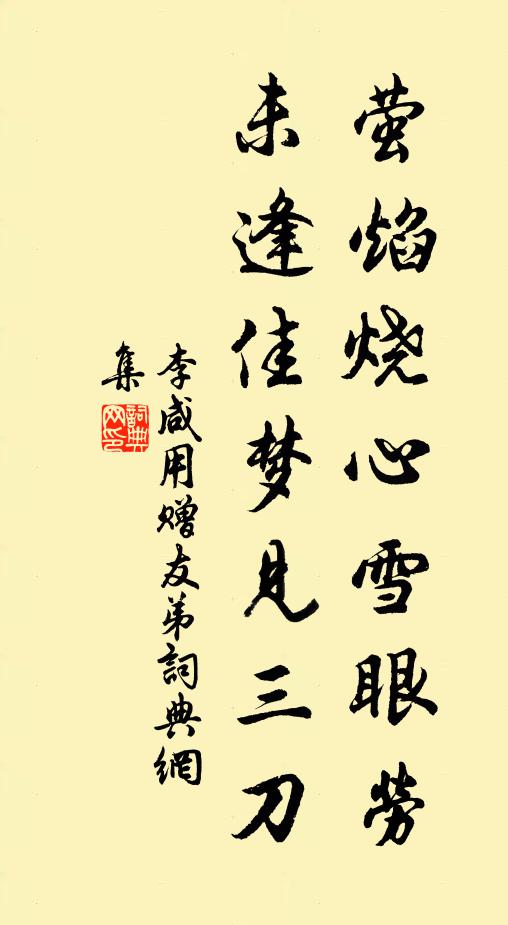 萤焰烧心雪眼劳
未逢佳梦见三刀
李咸用赠友弟詞典網
集
詞典网印